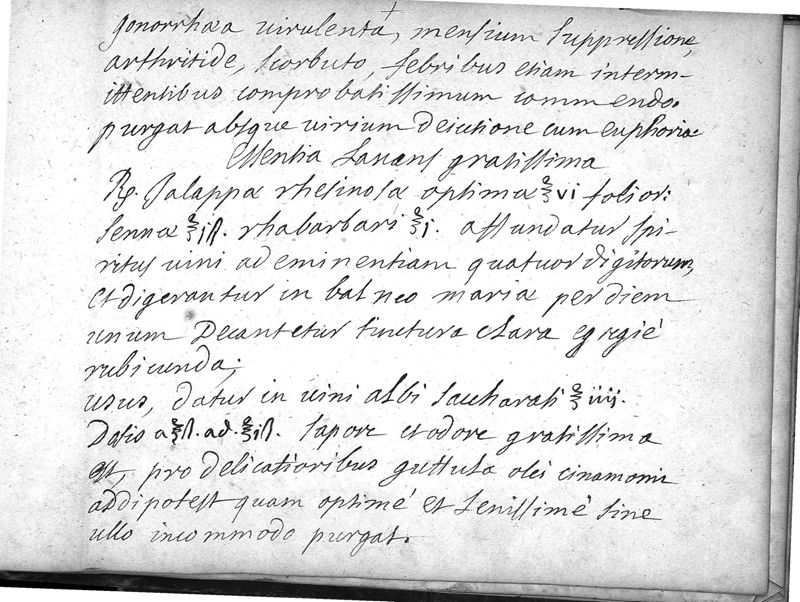 gonorrhæa virulentâ, mensium suppressione,
arthritide, scorbuto, febribus etiam interm-
ittentibus comprobatissimum commendo.
purgat absque virium deiectione cum euphoriæ
Essentia Laxans gratissima
℞. Jalappæ rhesinosæ optimæ ℥vi folior:
sennæ ℥iß. rhabarbari ℥j. affundatur spi-
ritus vini ad eminentiam quatuor digitorum,
et digerantur in balneo mariæ per diem
unum Decantetur tinctura clara egregié
rubicunda;
usus, datur in vini albi saccharati ℥iiij.
Dosis a ℥ß. ad. ℥iß. sapore et odore gratissima
est, pro delicatioribus guttula olei cinamomi
addi potest quam optimé et Lenissimé sine
ullo incommodo purgat.